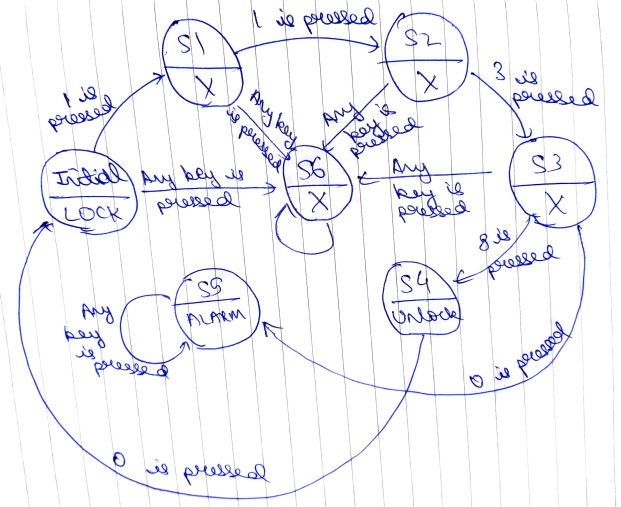 1 is pressed
S1
X
S2
X
3 is
pressed
1 is
pressed
Any key
is pressed
Any
key is
pressed
Initial
LOCK
Any key is
pressed
S6
X
Any
key is
pressed
S3
X
8 is
pressed
S4
UNLOCK
S5
ALARM
Any
key
is pressed
0 is pressed
0 is pressed